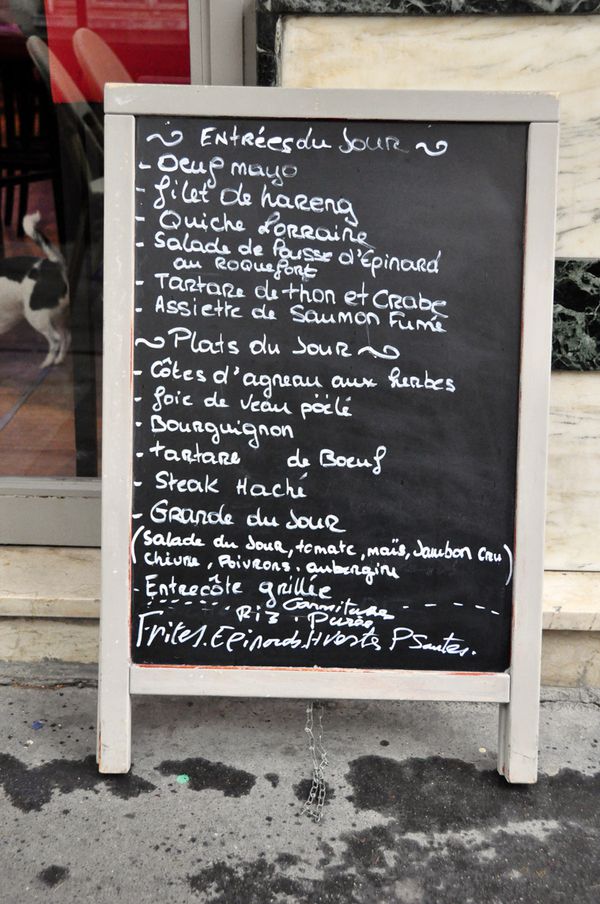 ~ Entrées du Jour ~
- Oeuf mayo
- filet de hareng
- Quiche Lorraine
- Salade de Pousse d'Epinard
au Roquefort
- Tartare de thon et Crabe
- Assiette de Saumon Fumé
~ Plats du Jour ~
- Côtes d'agneau aux herbes
- foie de veau pöélé
- Bourguignon
- tartare de Boeuf
- Steak Haché
- Grande du Jour
(Salade du Jour, tomate, maïs, Jambon Cru)
Chèvre, Poivrons, aubergine
- Entrecôte grillée
Garnitures
Riz . Purée
Frites. Epinards. H vertes P Sautes.